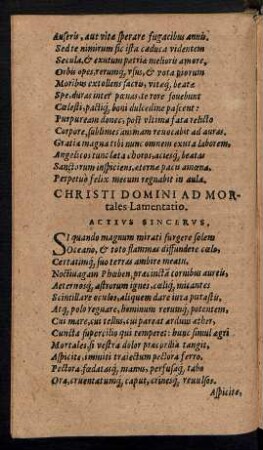 Auferis, aut vita sperare fugacibus annis.
Sed te nimirum sic ista caduca videntem
Secula, & exutum patria melioris amore,
Orbis opes, rerumq́, vsus, & vota piorum
Moribus extollens sacris, viteq́, beata
Spe, duras inter pœnas te rere fonebunt
Cœlesti, pactiq́, boni dulcedine pascent:
Purpuream donec, post vltima fata relicto
Corpore, sublimes animam reuocabit ad auras.
Gratia magna tibi nunc omnem exuta laborem,
Angelicos iuncta ta choros, aciesq́, beatas
Sanctorum inspiciens, aterna pacis amœna.
Perpetuò felix mecum regnabit in aula.
CHRISTI DOMINI AD MOR-
tales Lamentatio.
ACTIVS SINCERVS.
SI quando magnum mirati surgere solem
Oceano, & toto flammas diffundere cœlo,
Certatimq́, suo terras ambire meatu.
Noctiuagam Phœben, præcinctã cornibus aureis,
Aeternosq́, astrorum ignes, caliq́, micantes
Scintillare oculos, aliquem dare iura putastis,
Atq́, polo regnare, hominum rerumq́, potentem,
Cui mare, cui tellus, cui pareat arduus æther,
Cuncta supercilio qui temperet: hunc simul agri
Mortales, si vestra dolor præcordia tangit,
Aspicite, immiti traiectum pectora ferro.
Pectora fœdatasq́, manus, perfusaq́, tabo
Ora, cruentatumq́, caput, crinesq́, reuulsos.
Aspicite,